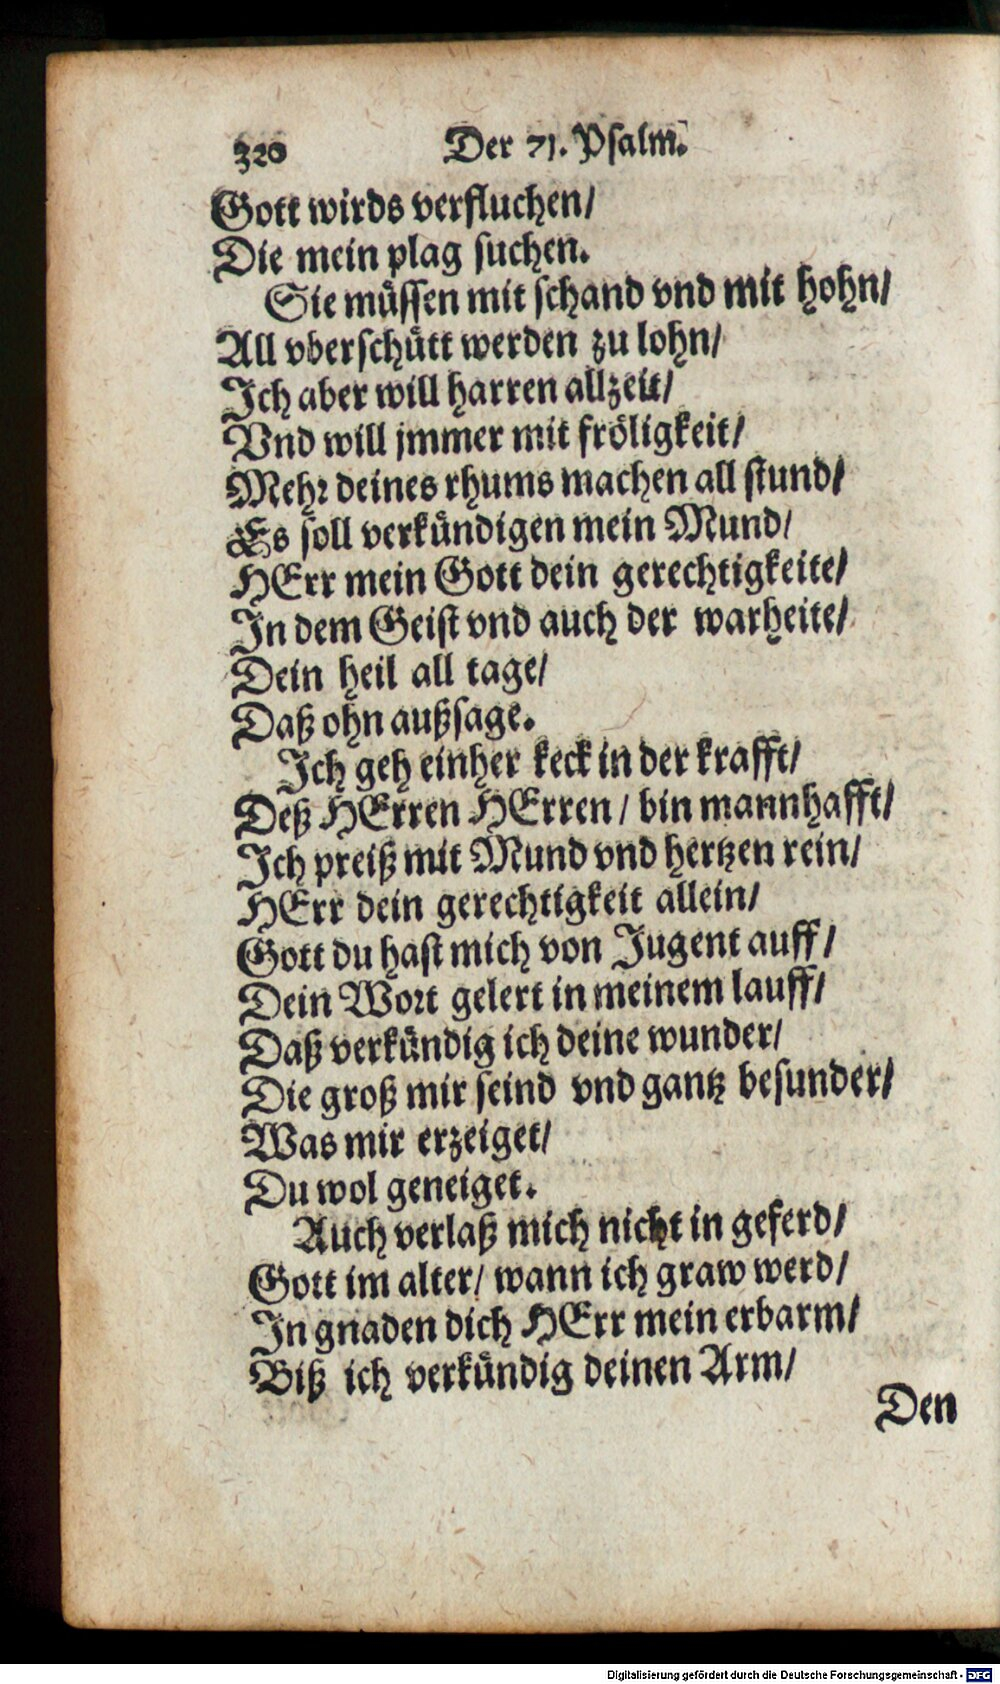 320 Der 71. Psalm.
Gott wirds verfluchen/
Die mein plag suchen.
Sie müssen mit schand vnd mit hohn/
All vberschütt werden zu lohn/
Ich aber will harren allzeit/
Vnd will jmmer mit fröligkeit/
Mehr deines rhums machen all stund/
Es soll verkündigen mein Mund/
HErr mein Gott dein gerechtigkeite/
In dem Geist vnd auch der warheite/
Dein heil all tage/
Daß ohn außsage.
Ich geh einher keck in der krafft/
Deß HErren HErren / bin mannhafft/
Ich preiß mit Mund vnd hertzen rein/
HErr dein gerechtigkeit allein/
Gott du hast mich von Jugent auff/
Dein Wort gelert in meinem lauff/
Daß verkündig ich deine wunder/
Die groß mir seind vnd gantz besunder/
Was mir erzeiget/
Du wol geneiget.
Auch verlaß mich nicht in geferd/
Gott im alter/ wann ich graw werd/
In gnaden dich HErr mein erbarm/
Biß ich verkündig deinen Arm/
Den
Digitalisierung gefördert durch die Deutsche Forschungsgemeinschaft - DFG